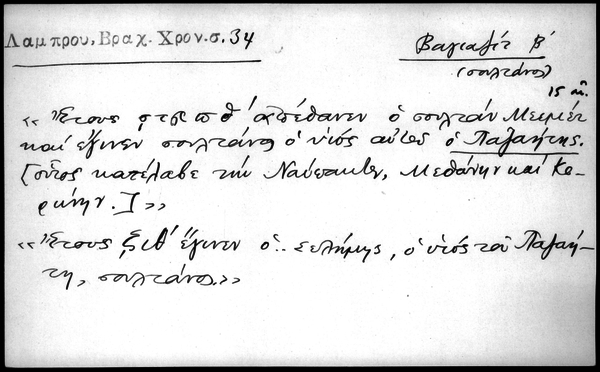 Λαμπρου, Βραχ. Χρον. σ. 34
Βαγιαζίτ Β΄
(σουλτάνος)
15 αἰ.
« Ἔτους ϛϡπθ΄ ἀπέθανεν ὁ σουλτάν Μεχμέτ
καί ἔγινεν σουλτάνος ὁ υἱός αὐτοῦ ὁ Παζαήτης.
[οὗτος κατέλαβε τήν Ναύπακτον, Μεθώνην καί Κο-
ρώνην.] »
« Ἔτους ζιθ΄ ἔγινεν ὁ.. Σελήμης, ὁ υἱός τοῦ Παζαή-
τη, σουλτάνος. »